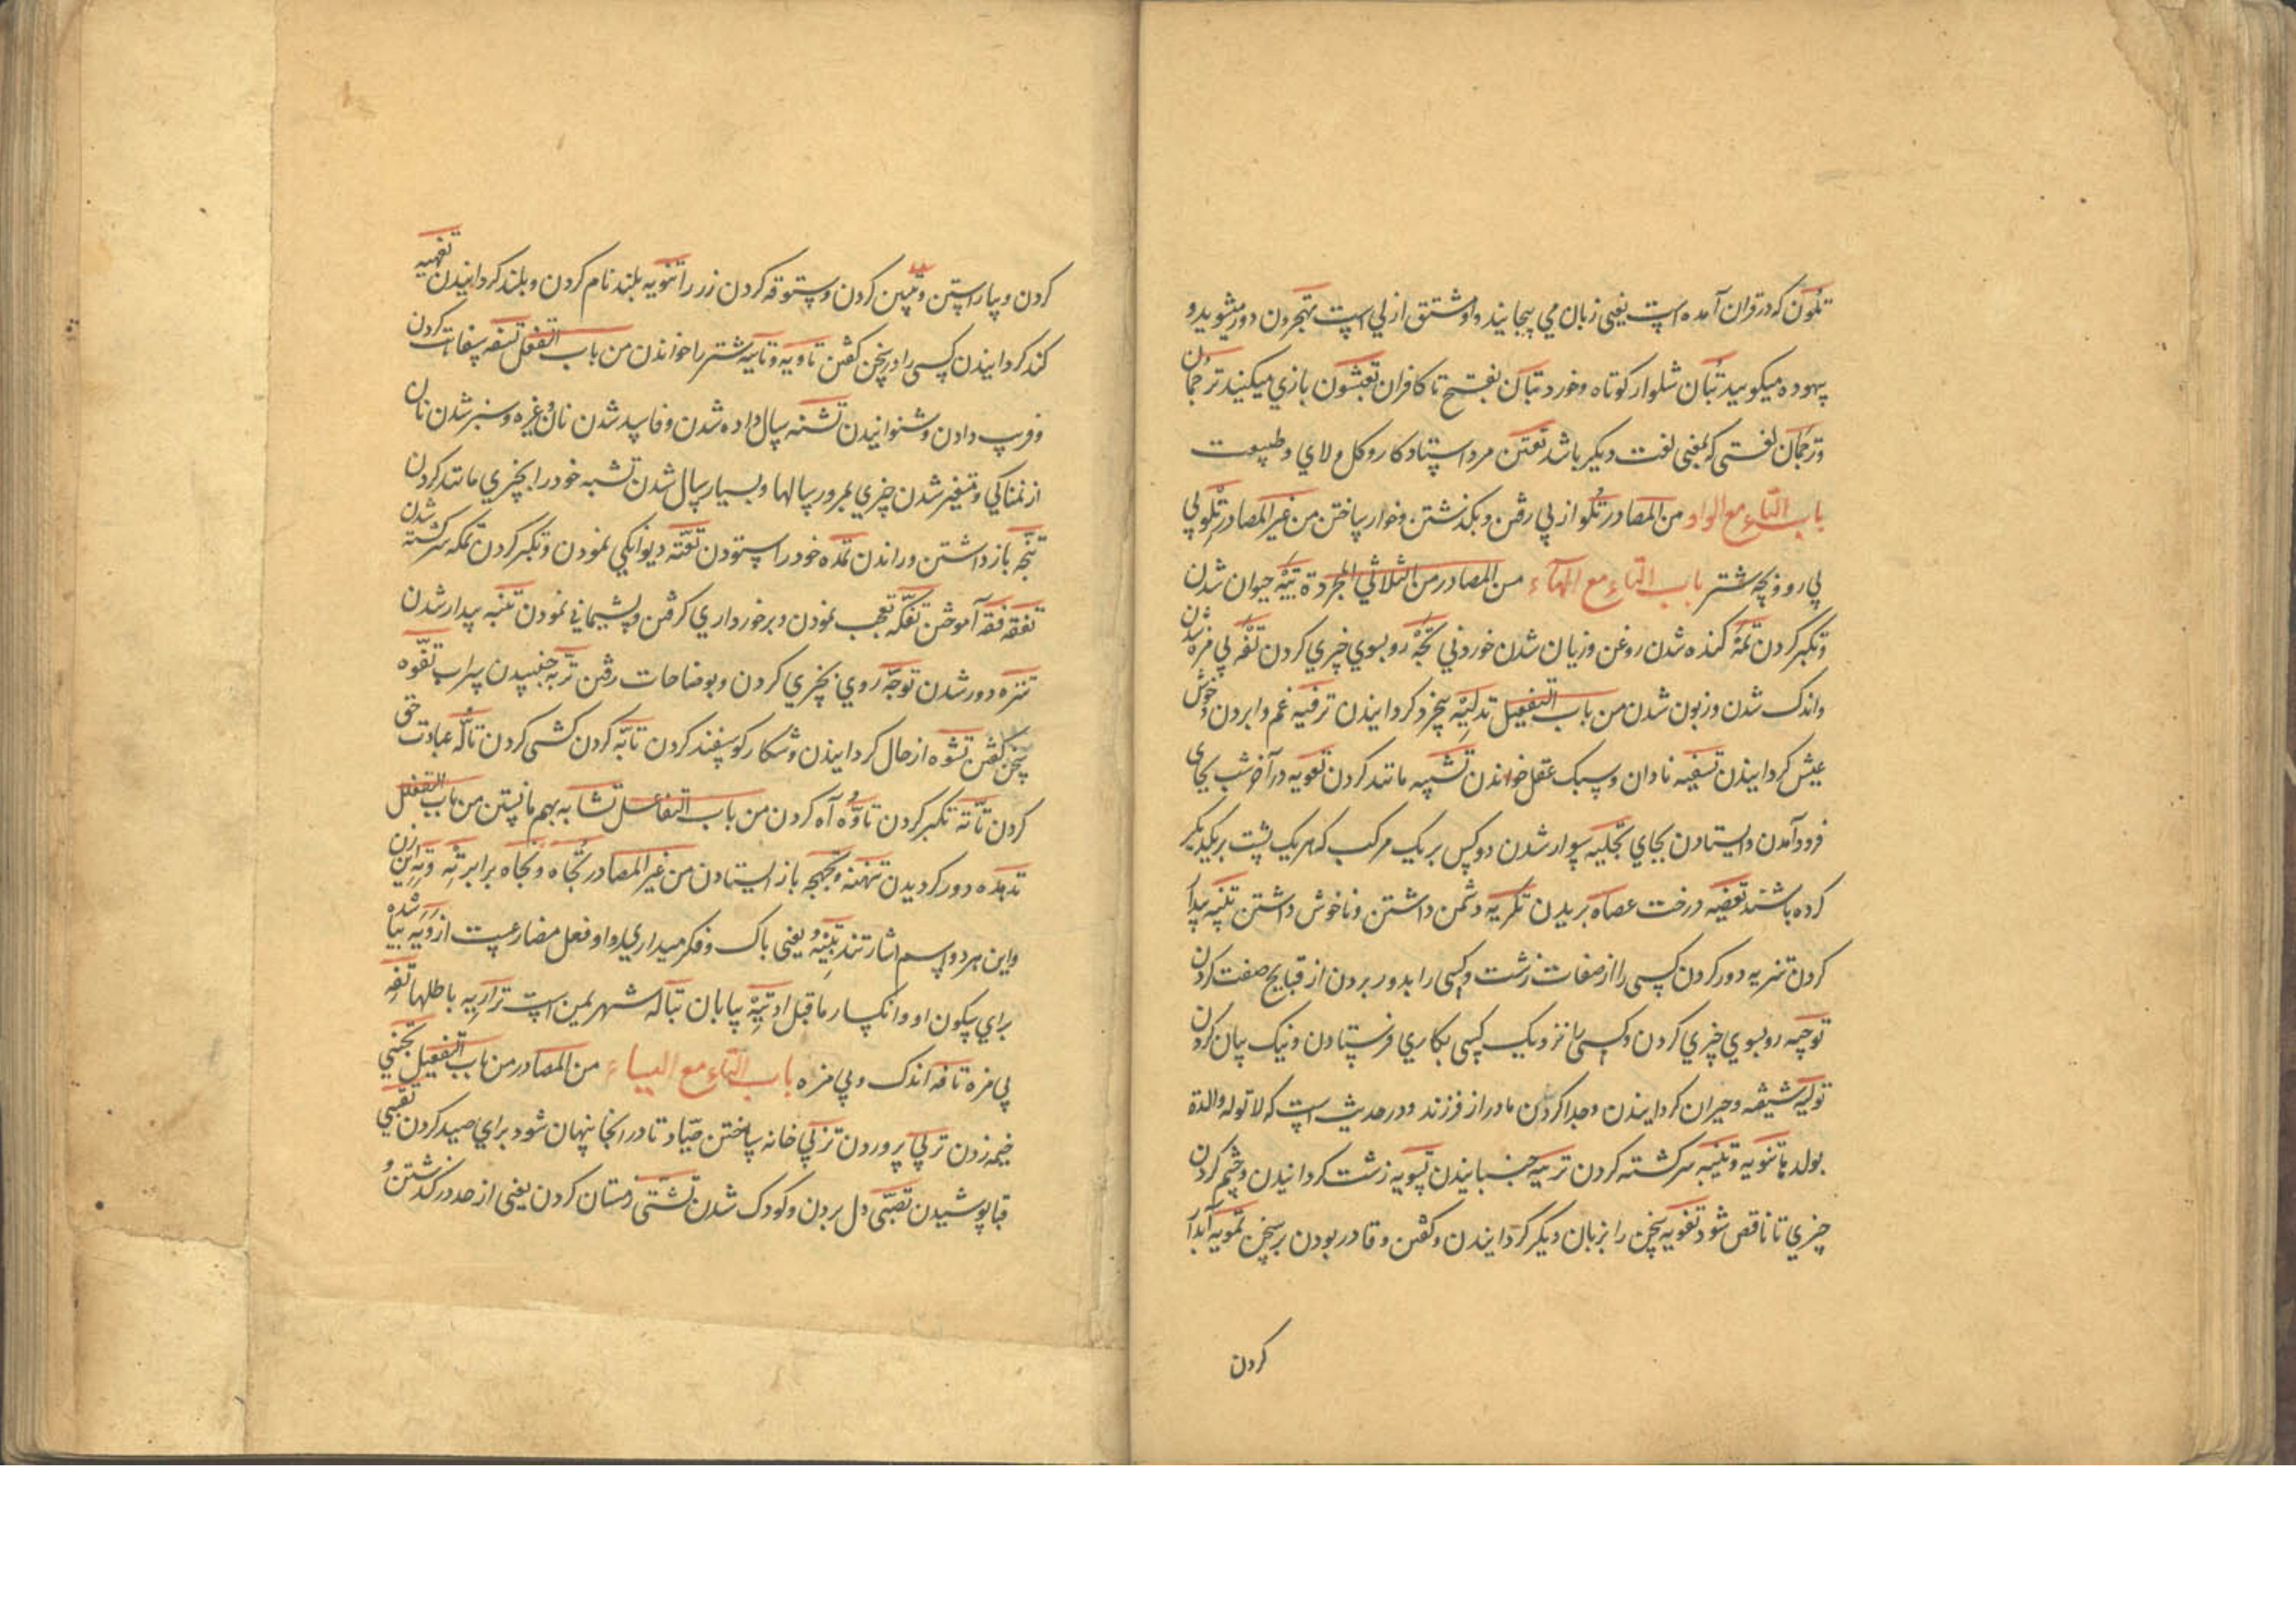 تلوون که در قران آمده است یعنی زبان می پیچانید واو مشتق از لی است تهجرون دور میشوید و
بیهوده میکویید تبان شلوار کوتاه وخورد تبان بفتح تا کافران تعبثون بازی میکنید ترجمان
وترجمان لغتی که بمعنی لغت دیکر باشد تعتن مرد استاد کار و کل و لای و طبیعت
باب التاء مع الواو من المصادر تلو از پی رفتن و بکذشتن و خوار ساختن من غیر المصادر تلو پی
پی رو و بچه شتر باب التاء مع الهاء من المصادر من الثلاثی المجردة تیه حیوان شدن
وتکبر کردن تمه کنده شدن روغن وزیان شدن خوردنی تجه رو بسوی چیزی کردن تفه بی مزه شدن
واندک شدن وزبون شدن من باب التفعیل تدلیه بیخرد کردانیدن ترفیه غم وابردن وخوش
عیش کردانیدن تسفیه نادان وسبک عقل خواندن تشبیه مانند کردن تعویه در آخر شب بجای
فرود آمدن وایستادن بجای تجلیه سوار شدن دو کس بر یک مرکب که هر یک پشت بر یکدیکر
کرده باشند تعضیه درخت عضاه بریدن تکریه دشمن داشتن وناخوش داشتن تنبیه بیدار
کردن تنزیه دور کردن کسی را از صفات زشت وکسی را بدور بردن از قبایح صفت کردن
توجیه رو بسوی چیزی کردن وکسی را نزدیک کسی بکاری فرستادن ونیک بیان کردن
تولیه شیفته وحیران کردانیدن وجدا کردن مادر از فرزند ودر حدیث است که لا توله والدة
بولدها تتویه وتتییه سرکشته کردن ترمیه جنبانیدن تسویه زشت کردانیدن وچشم کردن
چیزی تا ناقص شود تفویه سخن را بزبان دیکر کردانیدن وکفتن وقادر بودن بر سخن تمویه آبدار
کردن
کردن وبیاراستن وتلبین کردن وستوقه کردن زر را تنویه بلند نام کردن وبلند کردانیدن تفهیه
کند کردانیدن کسی را در سخن کفتن تاویه وتاییه شتر را خواندن من باب التفعل تسفه سفاهت کردن
وفریب دادن وشنوانیدن تسنه سال داده شدن وفاسد شدن نان وغیره وسبز شدن نان
از نمناکی ومتغیر شدن چیزی بمرور سالها وبسیار سال شدن تشبه خود را بچیزی مانند کردن
تنجه باز داشتن وراندن تمده خود را ستودن تعته دیوانکی نمودن وتکبر کردن تمکه سرکشته شدن
تفقه فقه آموختن تفکه تعجب نمودن وبرخورداری کرفتن وپشیمانی نمودن تنبه بیدار شدن
تنزه دور شدن توجه روی بچیزی کردن وبوضاحات رفتن تریه جنبیدن سراب تفوه
سخن کفتن تشوه از حال کردانیدن وشکار کوسفند کردن تابه کردن کشی کردن تاله عبادت حق
کردن تاته تکبر کردن تاوه آه کردن من باب التفاعل تشابه بهم مانستن من باب التفعلل
تدهده دور کردیدن تنهنه وتجهجه باز ایستادن من غیر المصادر تجاه وتجاه برابر ته وته این زن
واین هر دو اسم اشارتند تبنه یعنی باک وفکر میداری واو فعل مضارعست از شده
برای سکون او وانکسار ماقبل او تیه بیابان تباله شهر یمن است ترازیه باطلها تفه
بی مزه تافه اندک وبی مزه باب التاء مع الیاء من المصادر من باب التفعیل تخبی
خیمه زدن تربی پروردن تزبی خانه ساختن صیاد تا در انجا پنهان شود برای صید کردن تقبی
قبا پوشیدن تصبی دل بردن وکودک شدن تشتی زمستان کردن یعنی از حد در کذشتن و